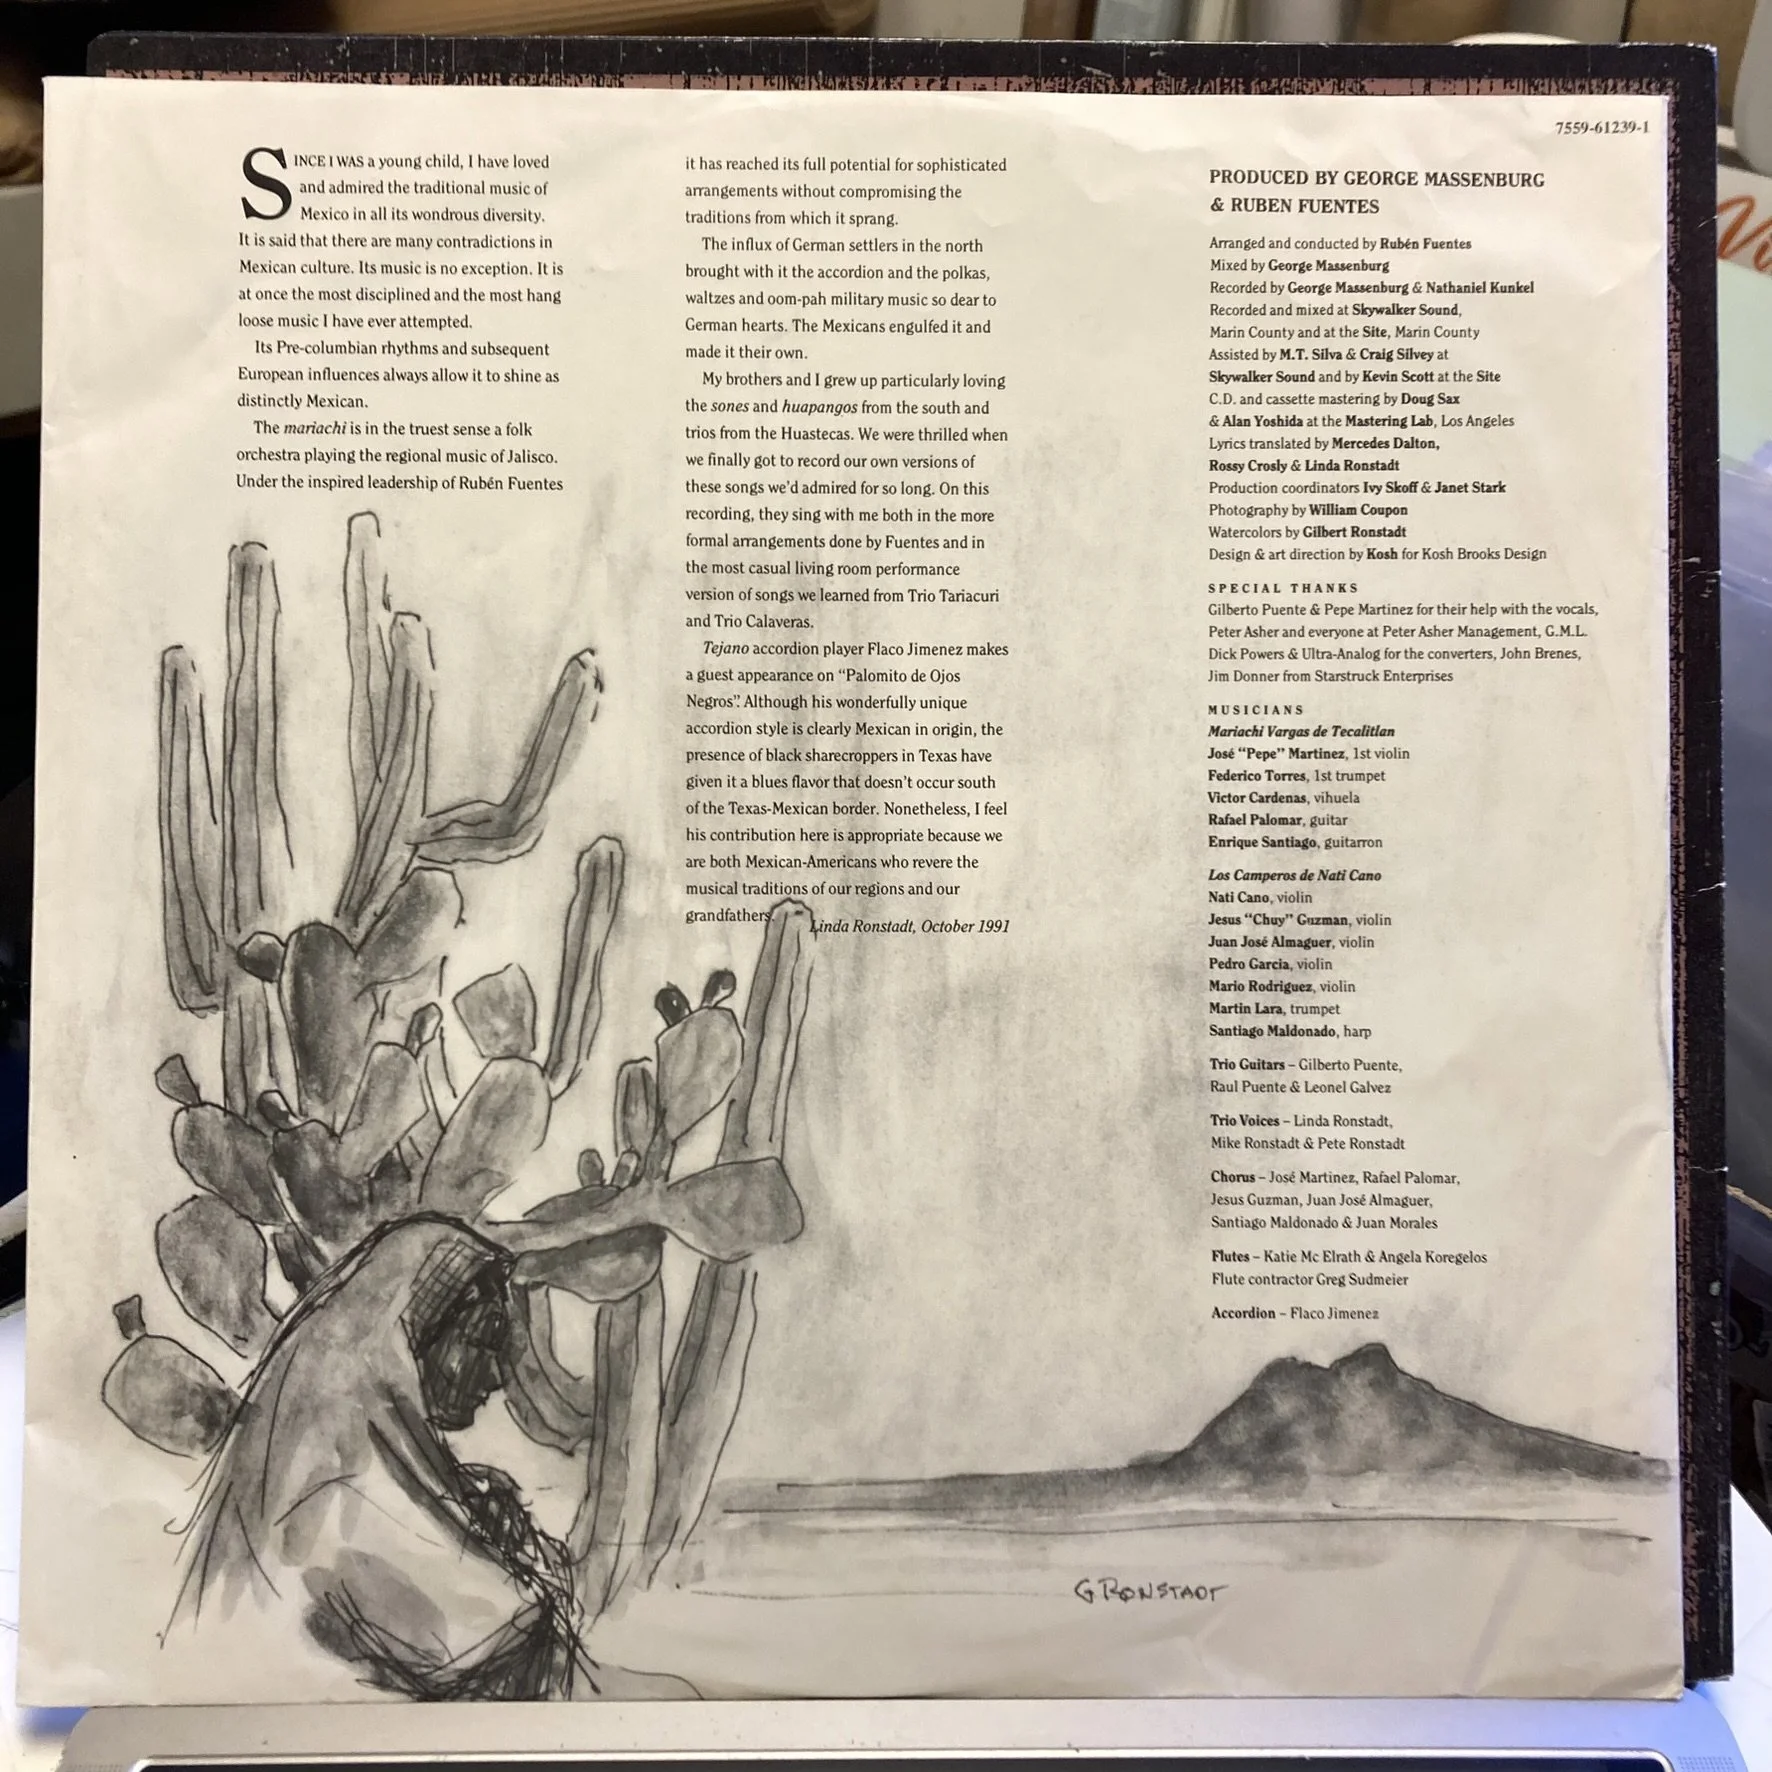 7559-61239-1
SINCE I WAS a young child, I have loved
and admired the traditional music of
Mexico in all its wondrous diversity.
It is said that there are many contradictions in
Mexican culture. Its music is no exception. It is
at once the most disciplined and the most hang
loose music I have ever attempted.
Its Pre-columbian rhythms and subsequent
European influences always allow it to shine as
distinctly Mexican.
The mariachi is in the truest sense a folk
orchestra playing the regional music of Jalisco.
Under the inspired leadership of Rubén Fuentes
it has reached its full potential for sophisticated
arrangements without compromising the
traditions from which it sprang.
The influx of German settlers in the north
brought with it the accordion and the polkas,
waltzes and oom-pah military music so dear to
German hearts. The Mexicans engulfed it and
made it their own.
My brothers and I grew up particularly loving
the sones and huapangos from the south and
trios from the Huastecas. We were thrilled when
we finally got to record our own versions of
these songs we'd admired for so long. On this
recording, they sing with me both in the more
formal arrangements done by Fuentes and in
the most casual living room performance
version of songs we learned from Trio Tariacuri
and Trio Calaveras.
Tejano accordion player Flaco Jimenez makes
a guest appearance on “Palomito de Ojos
Negros”. Although his wonderfully unique
accordion style is clearly Mexican in origin, the
presence of black sharecroppers in Texas have
given it a blues flavor that doesn't occur south
of the Texas-Mexican border. Nonetheless, I feel
his contribution here is appropriate because we
are both Mexican-Americans who revere the
musical traditions of our regions and our
grandfathers.
Linda Ronstadt, October 1991
PRODUCED BY GEORGE MASSENBURG
& RUBEN FUENTES
Arranged and conducted by Rubén Fuentes
Mixed by George Massenburg
Recorded by George Massenburg & Nathaniel Kunkel
Recorded and mixed at Skywalker Sound,
Marin County and at the Site, Marin County
Assisted by M.T. Silva & Craig Silvey at
Skywalker Sound and by Kevin Scott at the Site
C.D. and cassette mastering by Doug Sax
& Alan Yoshida at the Mastering Lab, Los Angeles
Lyrics translated by Mercedes Dalton,
Rossy Crosly & Linda Ronstadt
Production coordinators Ivy Skoff & Janet Stark
Photography by William Coupon
Watercolors by Gilbert Ronstadt
Design & art direction by Kosh for Kosh Brooks Design
SPECIAL THANKS
Gilberto Puente & Pepe Martinez for their help with the vocals,
Peter Asher and everyone at Peter Asher Management, G.M.L.
Dick Powers & Ultra-Analog for the converters, John Brenes,
Jim Donner from Starstruck Enterprises
MUSICIANS
Mariachi Vargas de Tecalitlan
José “Pepe” Martinez, 1st violin
Federico Torres, 1st trumpet
Victor Cardenas, vihuela
Rafael Palomar, guitar
Enrique Santiago, guitarron
Los Camperos de Nati Cano
Nati Cano, violin
Jesus “Chuy” Guzman, violin
Juan José Almaguer, violin
Pedro Garcia, violin
Mario Rodriguez, violin
Martin Lara, trumpet
Santiago Maldonado, harp
Trio Guitars – Gilberto Puente,
Raul Puente & Leonel Galvez
Trio Voices – Linda Ronstadt,
Mike Ronstadt & Pete Ronstadt
Chorus – José Martinez, Rafael Palomar,
Jesus Guzman, Juan José Almaguer,
Santiago Maldonado & Juan Morales
Flutes – Katie Mc Elrath & Angela Koregelos
Flute contractor Greg Sudmeier
Accordion – Flaco Jimenez
G RONSTADT